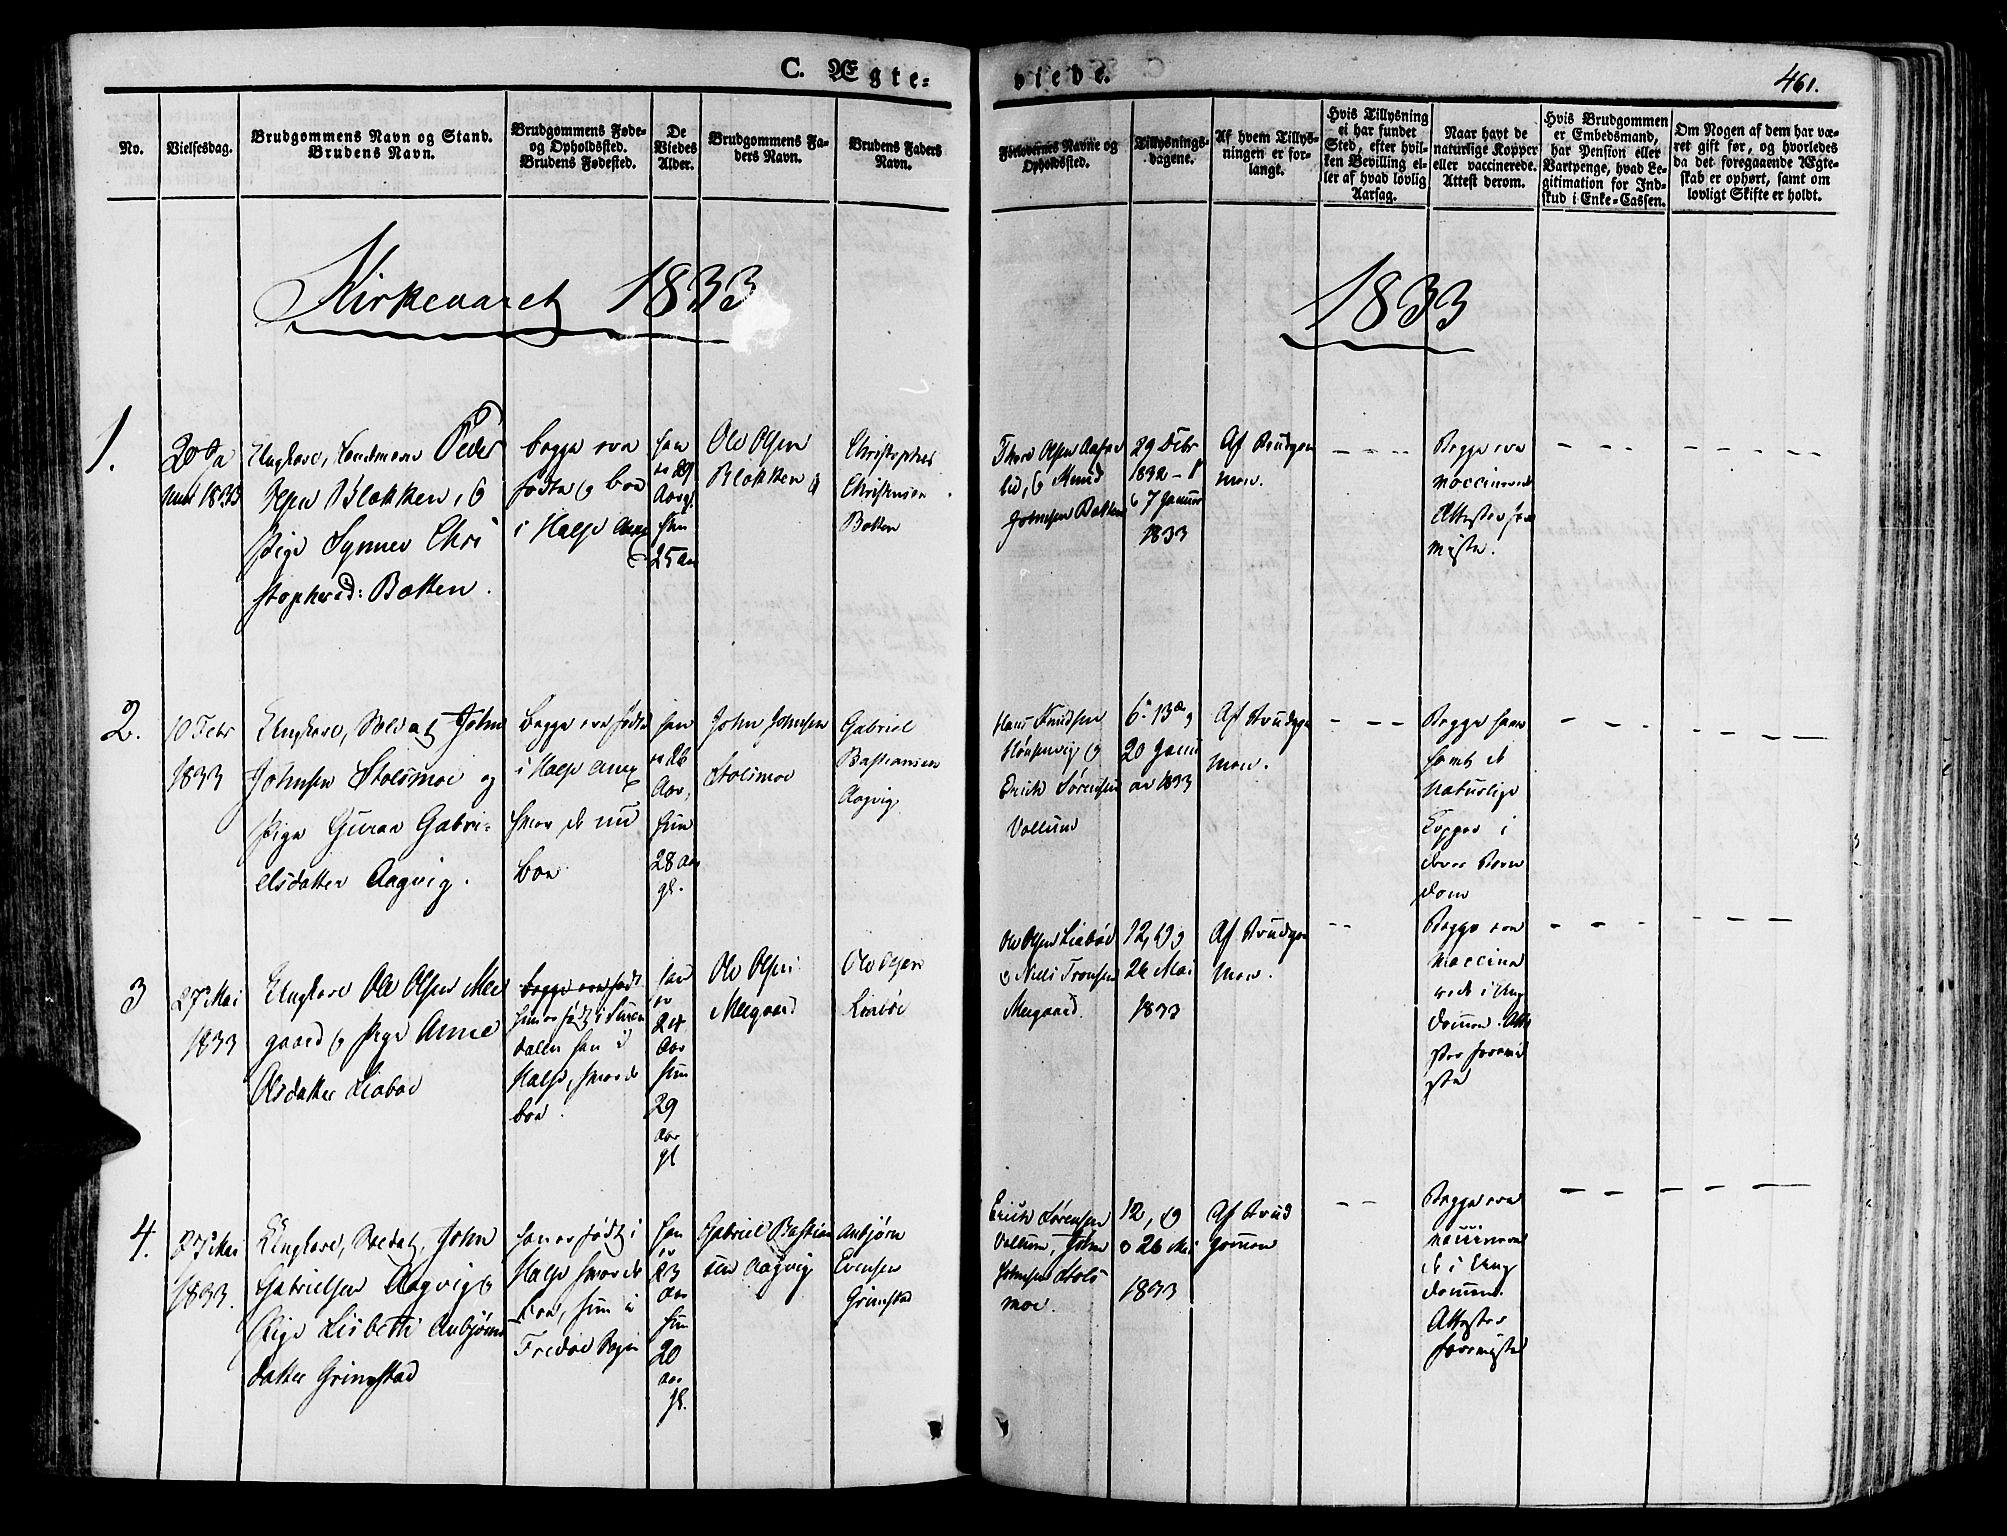 C. Ægte=
viede.
461.
No.
Vielsesdag.
Brudgommens Navn og Stand.
Brudens Navn.
Brudgommens Føde-
og Opholdssted.
Brudens Fødested.
De
Viedes
Alder.
Brudgommens Fa-
ders Navn.
Brudens Faders
Navn.
Forlovernes Navne og
Opholdssted.
Tillysnings-
dagene.
Af hvem Tillys-
ningen er for-
langt.
Hvis Tillysning
ei har fundet
Sted, efter hvil-
ken Bevilling el-
ler af hvad lovlig
Aarsag.
Naar havt de
naturlige Kopper
eller vaccinerede.
Attest derom.
Hvis Brudgommen
er Embedsmand,
har Pension eller
Vartpenge, hvad Le-
gitimation for Ind-
skud i Enke-Cassen.
Om Nogen af dem har væ-
ret gift før, og hvorledes
da det foregaaende Ægte-
skab er ophørt, samt om
lovligt Skifte er holdt.
Kirkeaaret 1833
1833
1.
20de Ja
nuar 1833
Ungkarl, Landmand Peder
Olsen Blekken, og
Pige Synnev Chri
stophersd: Botten.
begge ere
fødte og boe
i Halse Anex
han
er 29
Aar gl.
hun
25 aar
Ole Olsen
Blekken
Christopher
Christensen
Botten
Thore Olsen
og Knud
Johnsen Botten
29 Febr
1832
6 7 Januar
1833
Af Brudgom
men.
Begge ere
vaccinerede
Attester fore
viiste.
2.
10 Febr
1833
Ungkarl, Soldat John
Johnsen Stolsmoe og
Pige Guraa Gabri=
elsdatter Aagvig.
Begge ere fødte
i Halse Anex
hvor de nu
boe
han
er 26
Aar,
hun
28 aar
gl.
John Johnsen
Stolsmoe
Gabriel
Bastiansen
Aagvig
Hans Knudsen
og
Erich Sørensen
Vollum
6. 13de og
20 Janu
ar 1833
Af Brudgom
men.
Begge have
havt de
naturlige
Kopper i
deres Barn
dom
3
27 Mai
1833
Ungkarl Ole Olsen Mee
gaard og Pige Anne
Olsdatter Liabøe
begge ere født
hun er født i Suren
dalen han i
Halse, hvor de
boe
han
er
24
Aar
hun
29
Aar
gl
Ole Olsen
Meegaard
Ole Olsen
Liabøe
Ole Olsen Liabøe
og Niels Tronsen
Meegaard.
12, 19 og
26 Mai
1833
Af Brudgom
men.
Begge ere
vaccine
rede i Ung
dommen. Atte
ster forevi
ste
4.
27 Mai
1833.
Ungkarl, Soldat, John
Gabrielsen Aagvig og
Pige Lisbeth Anbjørns
datter Grimstad
han er født i
Halse hvor de
boe, hun i
Fredøe Sogn
han
er
23
Aar
hun
20
aar
gl.
Gabriel Bastian
sen Aagvig
Anbjørn
Evensen
Grimstad
Erich Sørensen
Vollum, John
Johnsen Stols
moe.
12, 19
og 26 Mai
1833
Af Brud
gommen
Begge ere
vaccinere
de i Ung
dommen.
Attester
foreviiste